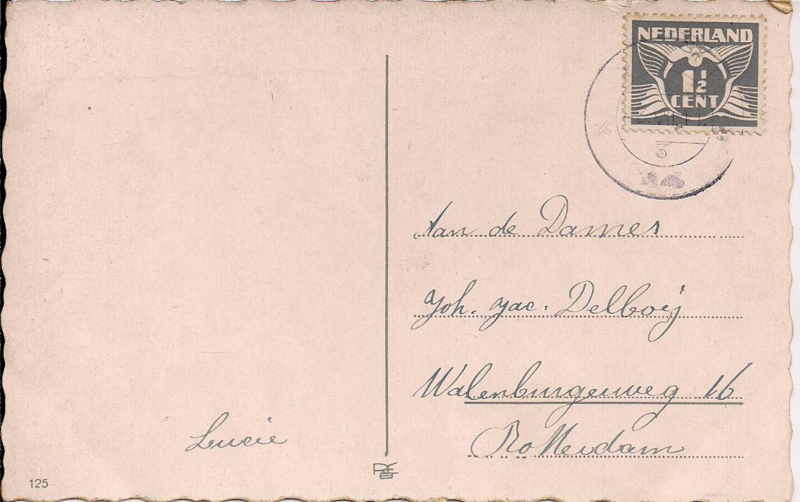 NEDERLAND
1½
CENT
3
Aan de Dames
Joh. Jac. Delboy
Walenburgerweg 16
Rotterdam
Lucie
125